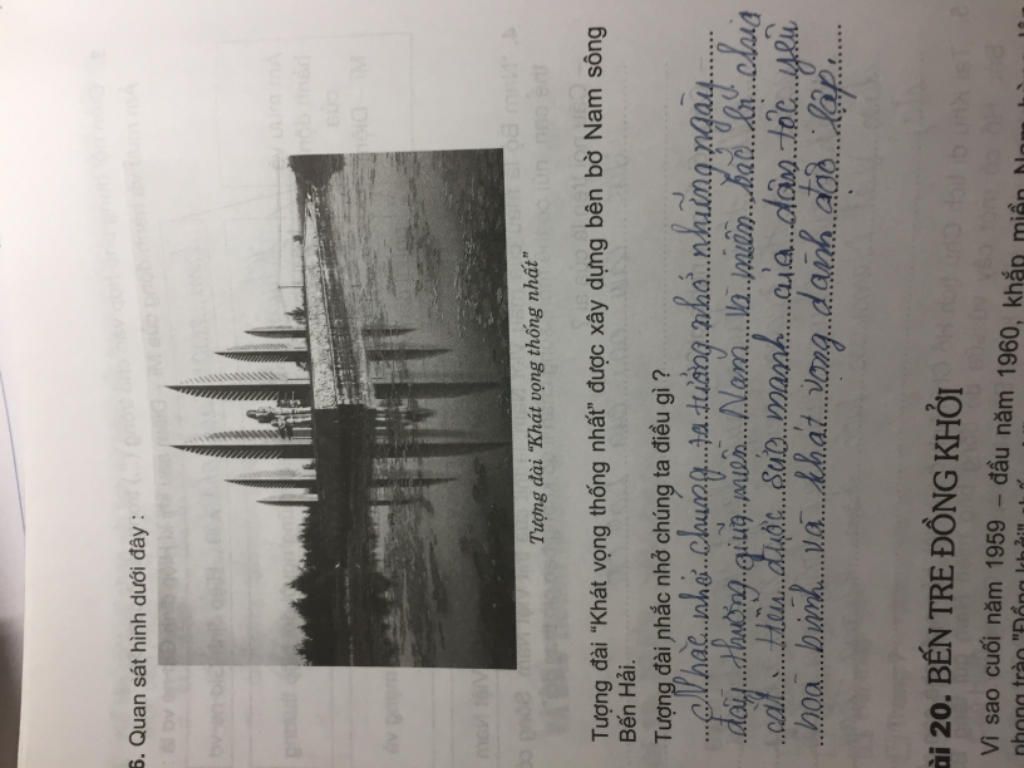 6. Quan sát hình dưới đây :
Tượng đài "Khát vọng thống nhất"
Tượng đài "Khát vọng thống nhất" được xây dựng bên bờ Nam sông
Bến Hải.
Tượng đài nhắc nhở chúng ta điều gì ?
Nhắc nhở chúng ta tưởng nhớ những ngày
đau thương giữa miền Nam và miền bắc bị chia
cắt. Hiểu được sức mạnh của dân tộc yêu
hoà bình và khát vọng dành độc lập.
ài 20. BẾN TRE ĐỒNG KHỞI
Vì sao cuối năm 1959 – đầu năm 1960, khắp miền Nam
phong trào "Đồng khởi"